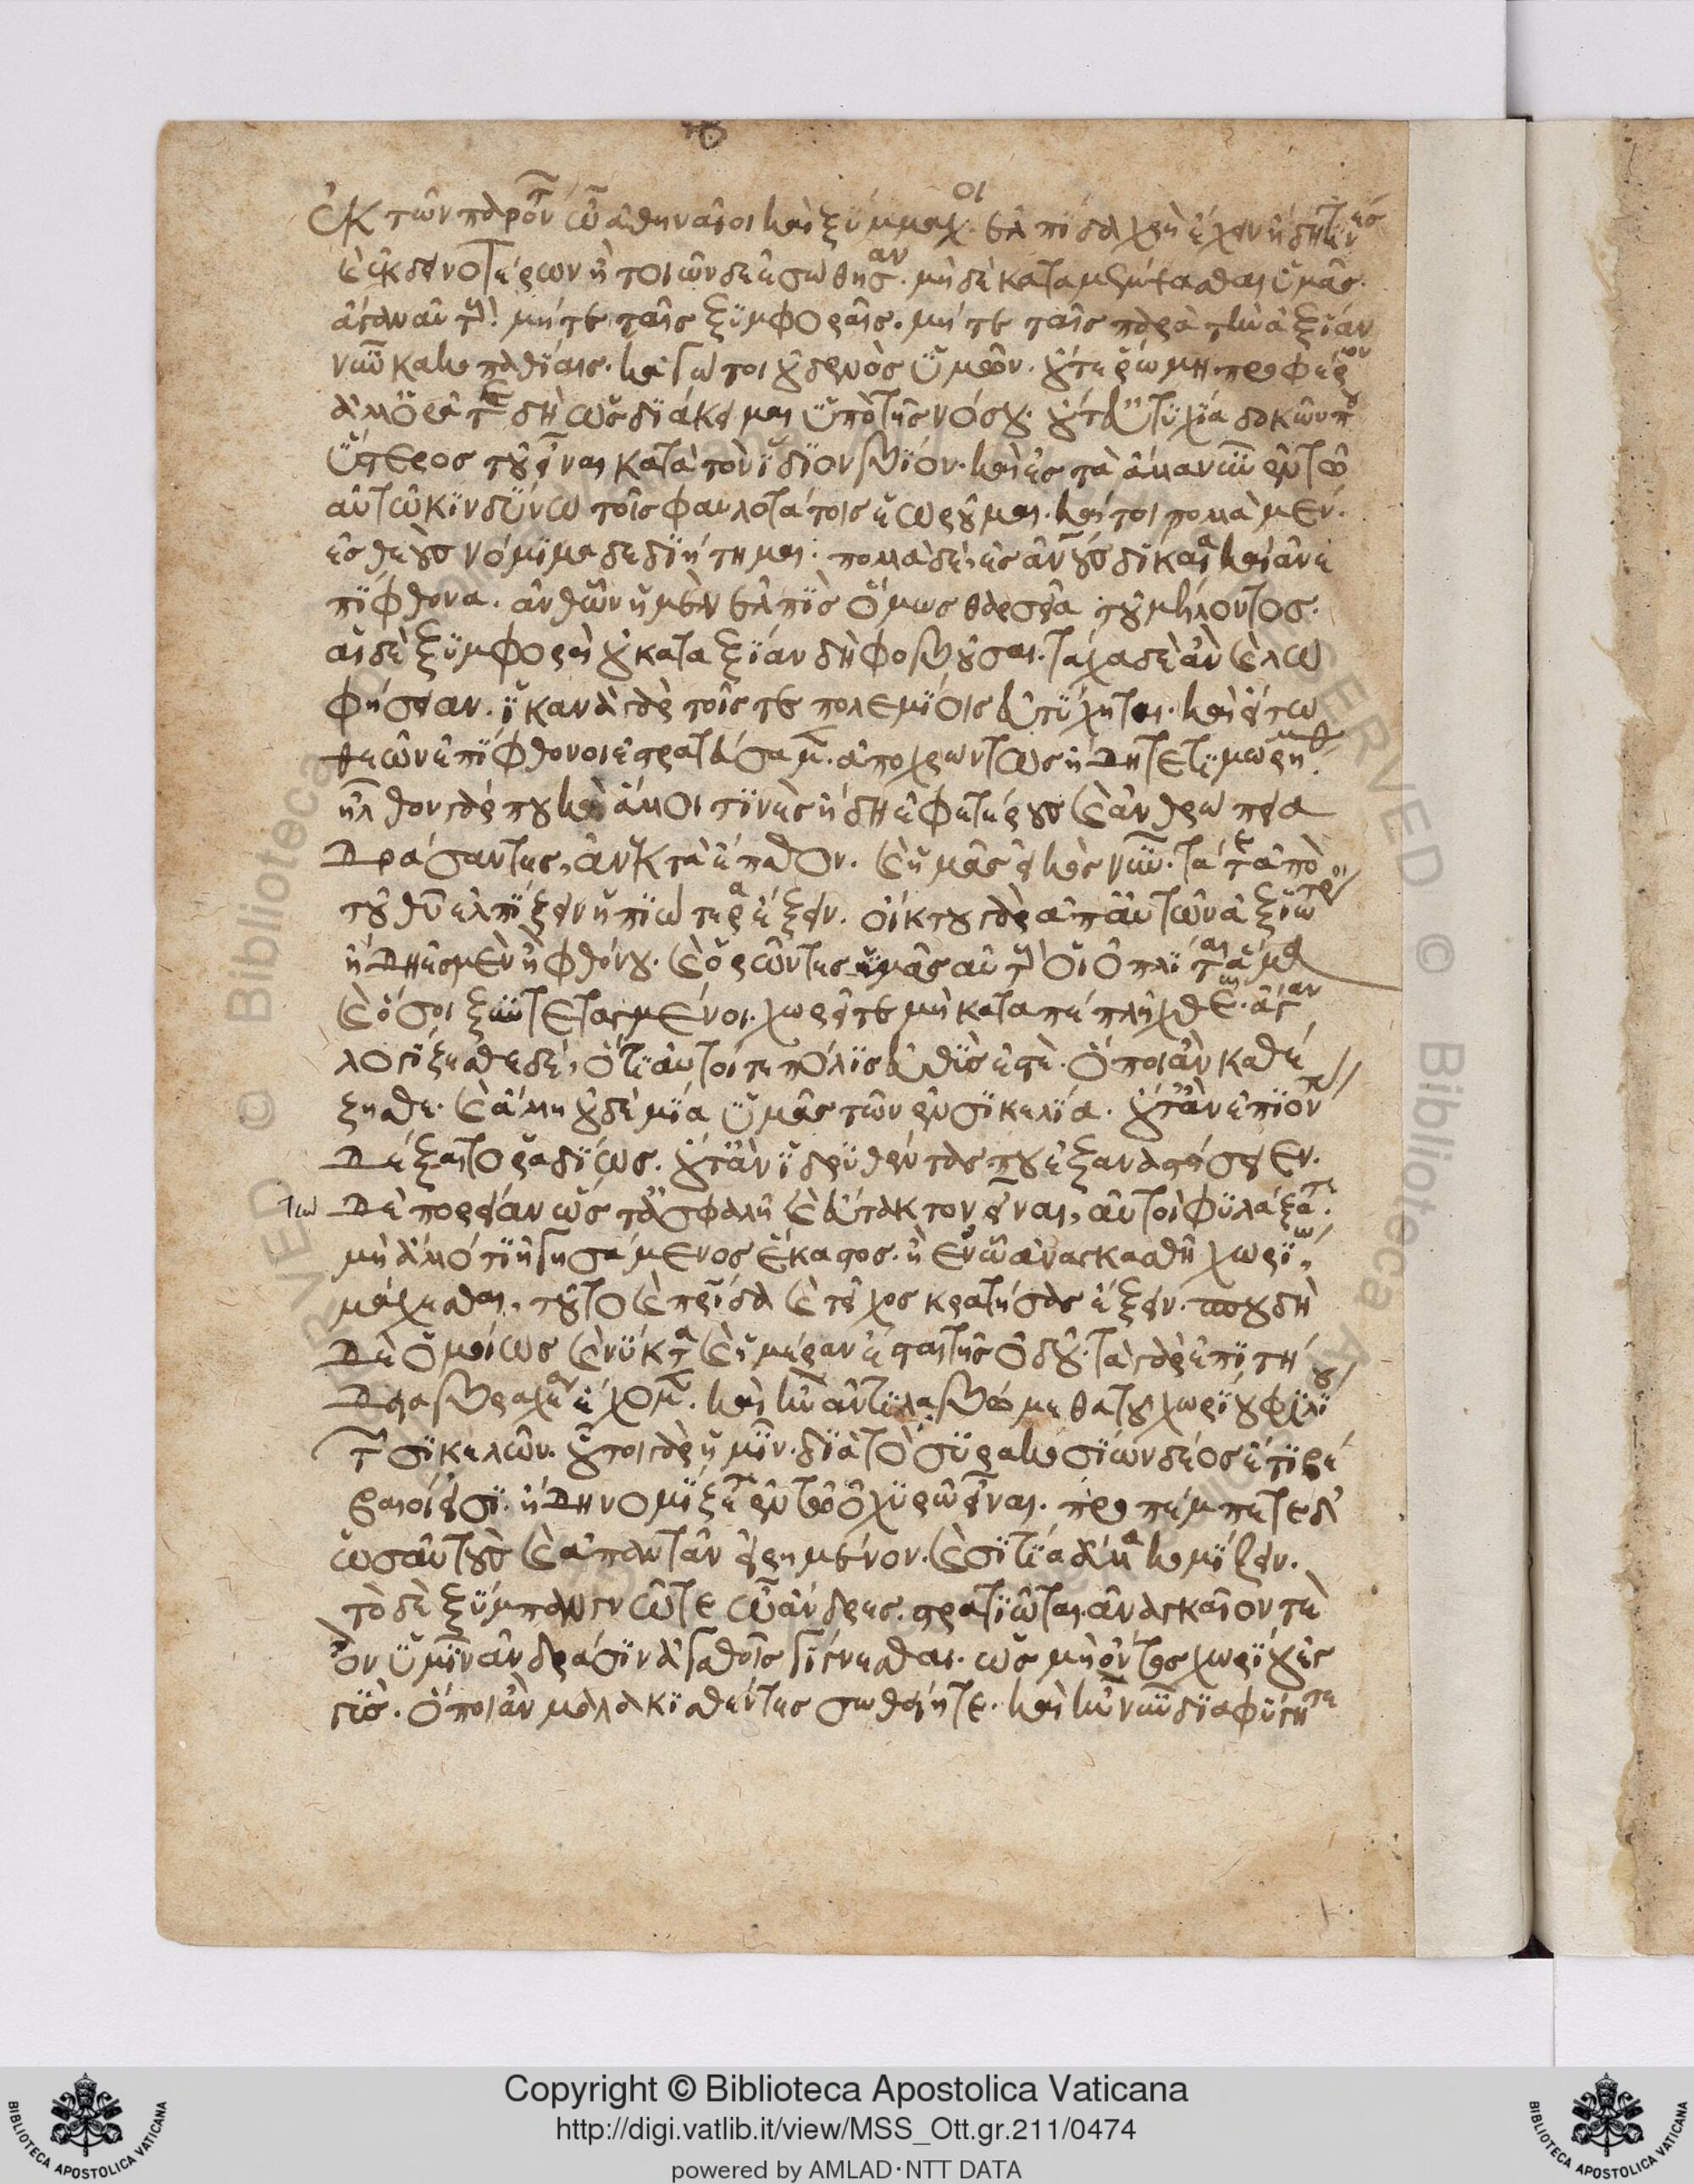 Ἐκ τῶν παρόντων ὦ ἀθηναῖοι καὶ ξύμμαχοι ἐλπίδα χρὴ ἔχειν ἤδη τινὲς
καὶ ἐκ δεινοτέρων ἢ τοιῶνδε ἐσώθησαν. μηδὲ καταμέμψασθαι ὑμᾶς
ἄγαν αὐτούς. μήτε ταῖς ξυμφοραῖς. μήτε ταῖς παρὰ τὴν ἀξίαν
νῦν κακοπαθίαις. κἀγώ τοι οὐδενὸς ὑμῶν. οὔτε ῥώμη προφέρων
ἀλλ' ὁρᾶτε δὴ ὡς διάκειμαι ὑπὸ τῆς νόσου. οὔτ' εὐτυχία δοκῶν που
ὕστερος του εἶναι κατὰ τὸν ἴδιον βίον. καὶ ἐς τὰ ἄλλα νῦν ἐν τῶ
αὐτῶ κινδύνω τοῖς φαυλοτάτοις αἰωροῦμαι. καίτοι πολλὰ μὲν.
ἐς θεοὺς νόμιμα δεδιήτημαι. πολλὰ δὲ, ἐς ἀνθρώπους δίκαια καὶ ἀνε
πίφθονα. ἀνθ' ὧν ἡ μὲν ἐλπὶς ὅμως θαρσεῖα τοῦ μέλλοντος.
αἱ δὲ ξυμφοραὶ οὐ κατ' ἀξίαν δὴ φοβοῦσαι. τάχα δὲ ἂν καὶ λω
φήσειαν. ἱκανὰ γὰρ τοῖς τε πολεμίοις εὐτύχηται. καὶ εἴ τω
θεῶν ἐπίφθονοι ἐστρατεύσαμεν. ἀποχρώντως ἤδη τετιμωρήμεθα.
ἦλθον γάρ που καὶ ἄλλοι τινὲς ἤδη ἐφ' ἑτέρους καὶ ἀνθρώπεια
δράσαντες, ἀνεκτὰ ἔπαθον. καὶ ἡμᾶς εἰκὸς νῦν. τά τε ἀπὸ
τοῦ θείου ἐλπίζειν ἠπιώτερα ἕξειν. οἴκτου γὰρ ἀπ' αὐτῶν ἀξιώτεροι
ἤδη ἐσμὲν ἢ φθόνου. καὶ ὁρῶντες ὑμᾶς αὐτοὺς οἷοι ὁπλῖται ἅμα
καὶ ὅσοι ξυντεταγμένοι. χωρεῖτε μὴ καταπέπληχθε. ἄγαν
λογίζεσθε δὲ, ὅτι αὐτοί τε πόλις εὐθύς ἐστε. ὅποι ἂν καθέ
ζησθε. καὶ ἄλλη οὐδεμία ὑμᾶς τῶν ἐν σικελία. οὔτ' ἂν ἐπιόντας
δέξαιτο ῥαδίως. οὔτ' ἂν ἱδρυθέντας που ἐξαναστήσειεν.
τὴν δὲ πορείαν ὥστ' ἀσφαλῆ καὶ εὔτακτον εἶναι, αὐτοὶ φυλάξατε.
μὴ ἄλλό τι ἡγησάμενος ἕκαστος. ἢ ἐν ὧ ἂν ἀναγκασθῆ χωρίω,
μάχεσθαι, τοῦτο καὶ πατρίδα καὶ τεῖχος κρατήσας ἕξειν. σπουδὴ
δὲ ὁμοίως καὶ νύκτα καὶ ἡμέραν ἔσται τῆς ὁδοῦ. τὰ γὰρ ἐπιτή
δεια βραχέα ἔχομεν. καὶ ἢν ἀντιλαβώμεθα του χωρίου φιλίου
τῶν σικελῶν. οὗτοι γὰρ ἡμῖν. διὰ τὸ συρακοσίων δέος ἔτι βέ
βαιοι εἰσί. ἤδη νομίζετε ἐν τῶ ὀχυρῶ εἶναι. προπέμπετε δ'
ὡς αὐτοὺς καὶ ἀπαντᾶν εἰρημένον. καὶ σιτία ἄλλα κομίζειν.
τὸ δὲ ξύμπαν γνῶτε ὦ ἄνδρες στρατιῶται ἀναγκαῖόν τε
ὂν ὑμῖν ἀνδράσιν ἀγαθοῖς γίγνεσθαι. ὡς μὴ ὄντος χωρίου ἐγ
γύς. ὅποι ἂν μαλακισθέντες σωθείητε. καὶ ἢν νῦν διαφύγητε